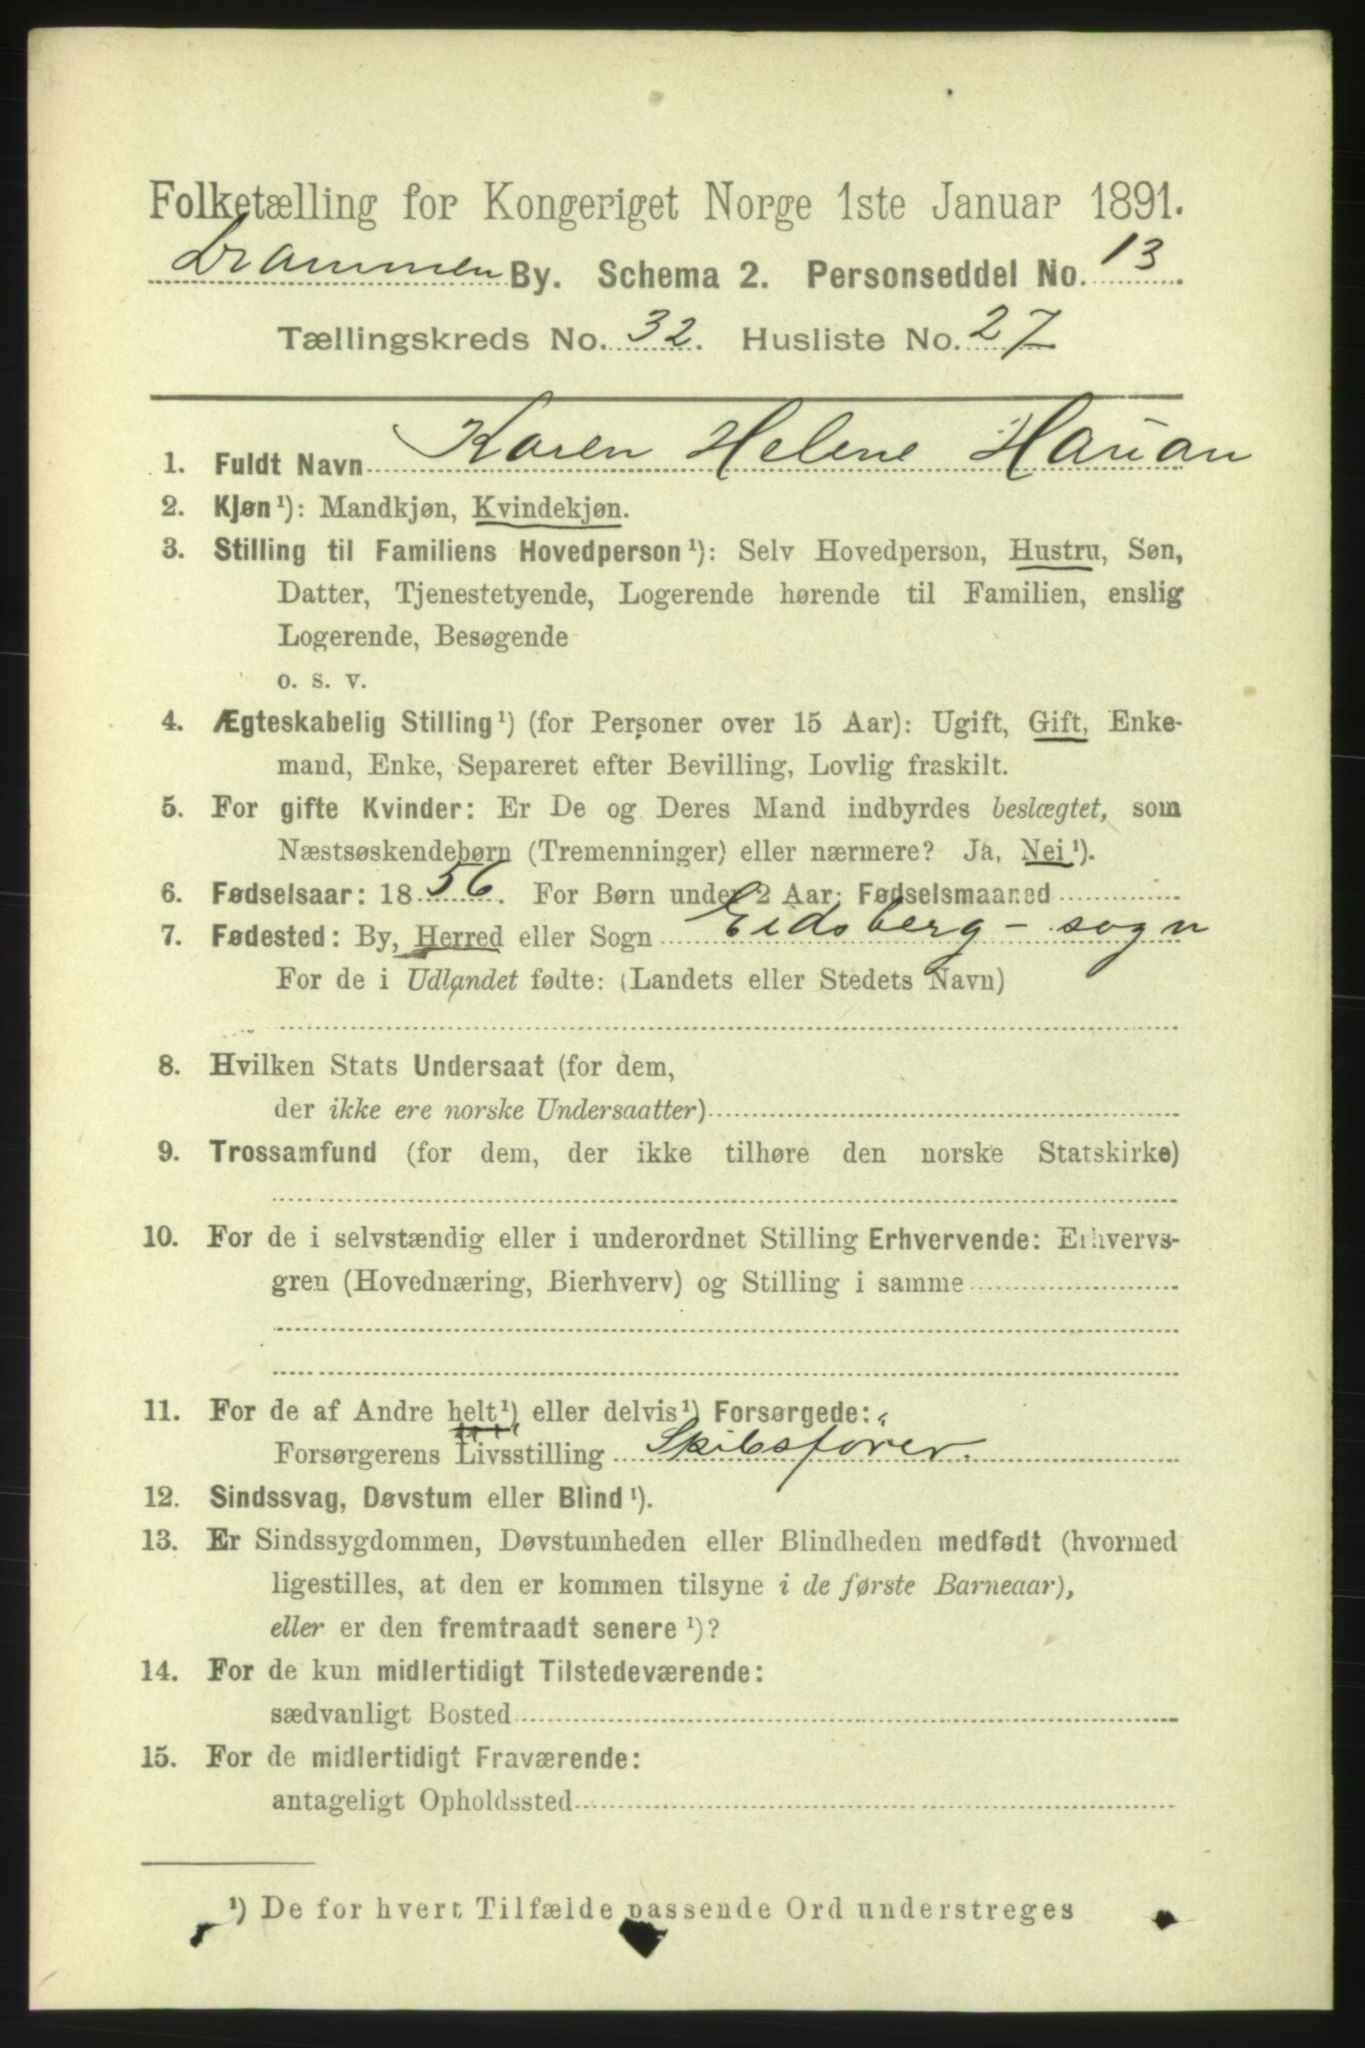 Folketælling for Kongeriget Norge 1ste Januar 1891.
Drammen By. Schema 2. Personseddel No. 13
Tællingskreds No. 32. Husliste No. 27
1. Fuldt Navn Karen Helene Hauan
2. Kjøn¹): Mandkjøn, Kvindekjøn.
3. Stilling til Familiens Hovedperson¹): Selv Hovedperson, Hustru, Søn,
Datter, Tjenestetyende, Logerende hørende til Familien, enslig
Logerende, Besøgende
o. s. v.
4. Ægteskabelig Stilling¹) (for Personer over 15 Aar): Ugift, Gift, Enke-
mand, Enke, Separeret efter Bevilling, Lovlig fraskilt.
5. For gifte Kvinder: Er De og Deres Mand indbyrdes beslægtet, som
Næstsøskendebørn (Tremenninger) eller nærmere? Ja, Nei¹).
6. Fødselsaar: 1856. For Børn under 2 Aar: Fødselsmaaned
7. Fødested: By, Herred eller Sogn Eidsberg - sogn
For de i Udlandet fødte: (Landets eller Stedets Navn)
8. Hvilken Stats Undersaat (for dem,
der ikke ere norske Undersaatter)
9. Trossamfund (for dem, der ikke tilhøre den norske Statskirke)
10. For de i selvstændig eller i underordnet Stilling Erhvervende: Erhvervs-
gren (Hovednæring, Bierhverv) og Stilling i samme
11. For de af Andre helt¹) eller delvis¹) Forsørgede:
Forsørgerens Livsstilling Skibsfører.
12. Sindssvag, Døvstum eller Blind¹).
13. Er Sindssygdommen, Døvstumheden eller Blindheden medfødt (hvormed
ligestilles, at den er kommen tilsyne i de første Barneaar),
eller er den fremtraadt senere¹)?
14. For de kun midlertidigt Tilstedeværende:
sædvanligt Bosted
15. For de midlertidigt Fraværende:
antageligt Opholdssted
¹) De for hvert Tilfælde passende Ord understreges